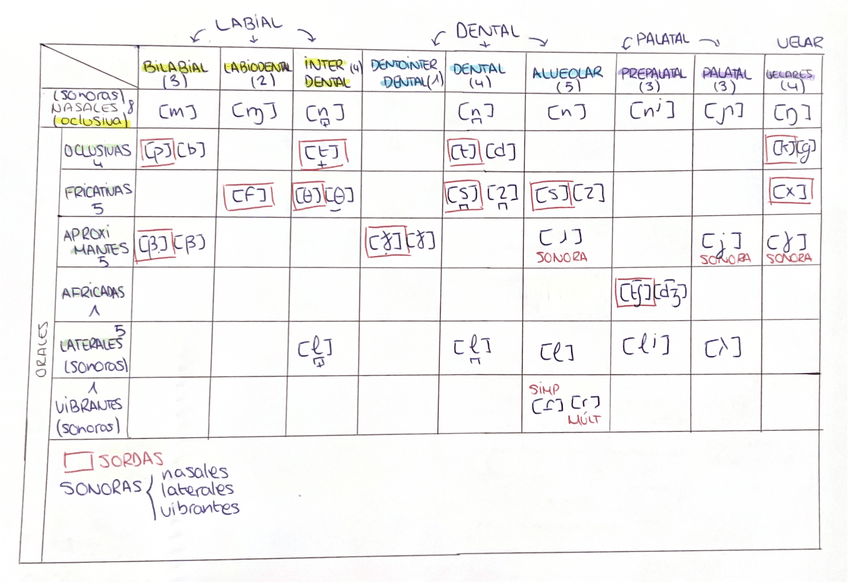 LABIAL DENTAL PALATAL VELAR
BILABIAL (3) LABIODENTAL (2) INTER DENTAL (4) DENTOINTER DENTAL (1) DENTAL (4) ALVEOLAR (5) PREPALATAL (3) PALATAL (3) VELARES (4)
(sonoras) NASALES 8 (oclusiva) [m] [ɱ] [n̟] [n̪] [n] [nʲ] [ɲ] [ŋ]
ORALES
OCLUSIVAS 4 [p] [b] [t̟] [t] [d] [k] [g]
FRICATIVAS 5 [f] [θ] [θ̬] [s̪] [z̪] [s] [z] [x]
APROXI MANTES 5 [β̥] [β] [ɹ] SONORA [j] SONORA [ɣ] SONORA
AFRICADAS 1 [tʃ] [dʒ]
LATERALES 5 (sonoras) [l̟] [l̪] [l] [lʲ] [ʎ]
1 VIBRANTES (sonoras) SIMP [ɾ] [r] MÚLT
SORDAS
SONORAS { nasales
laterales
vibrantes